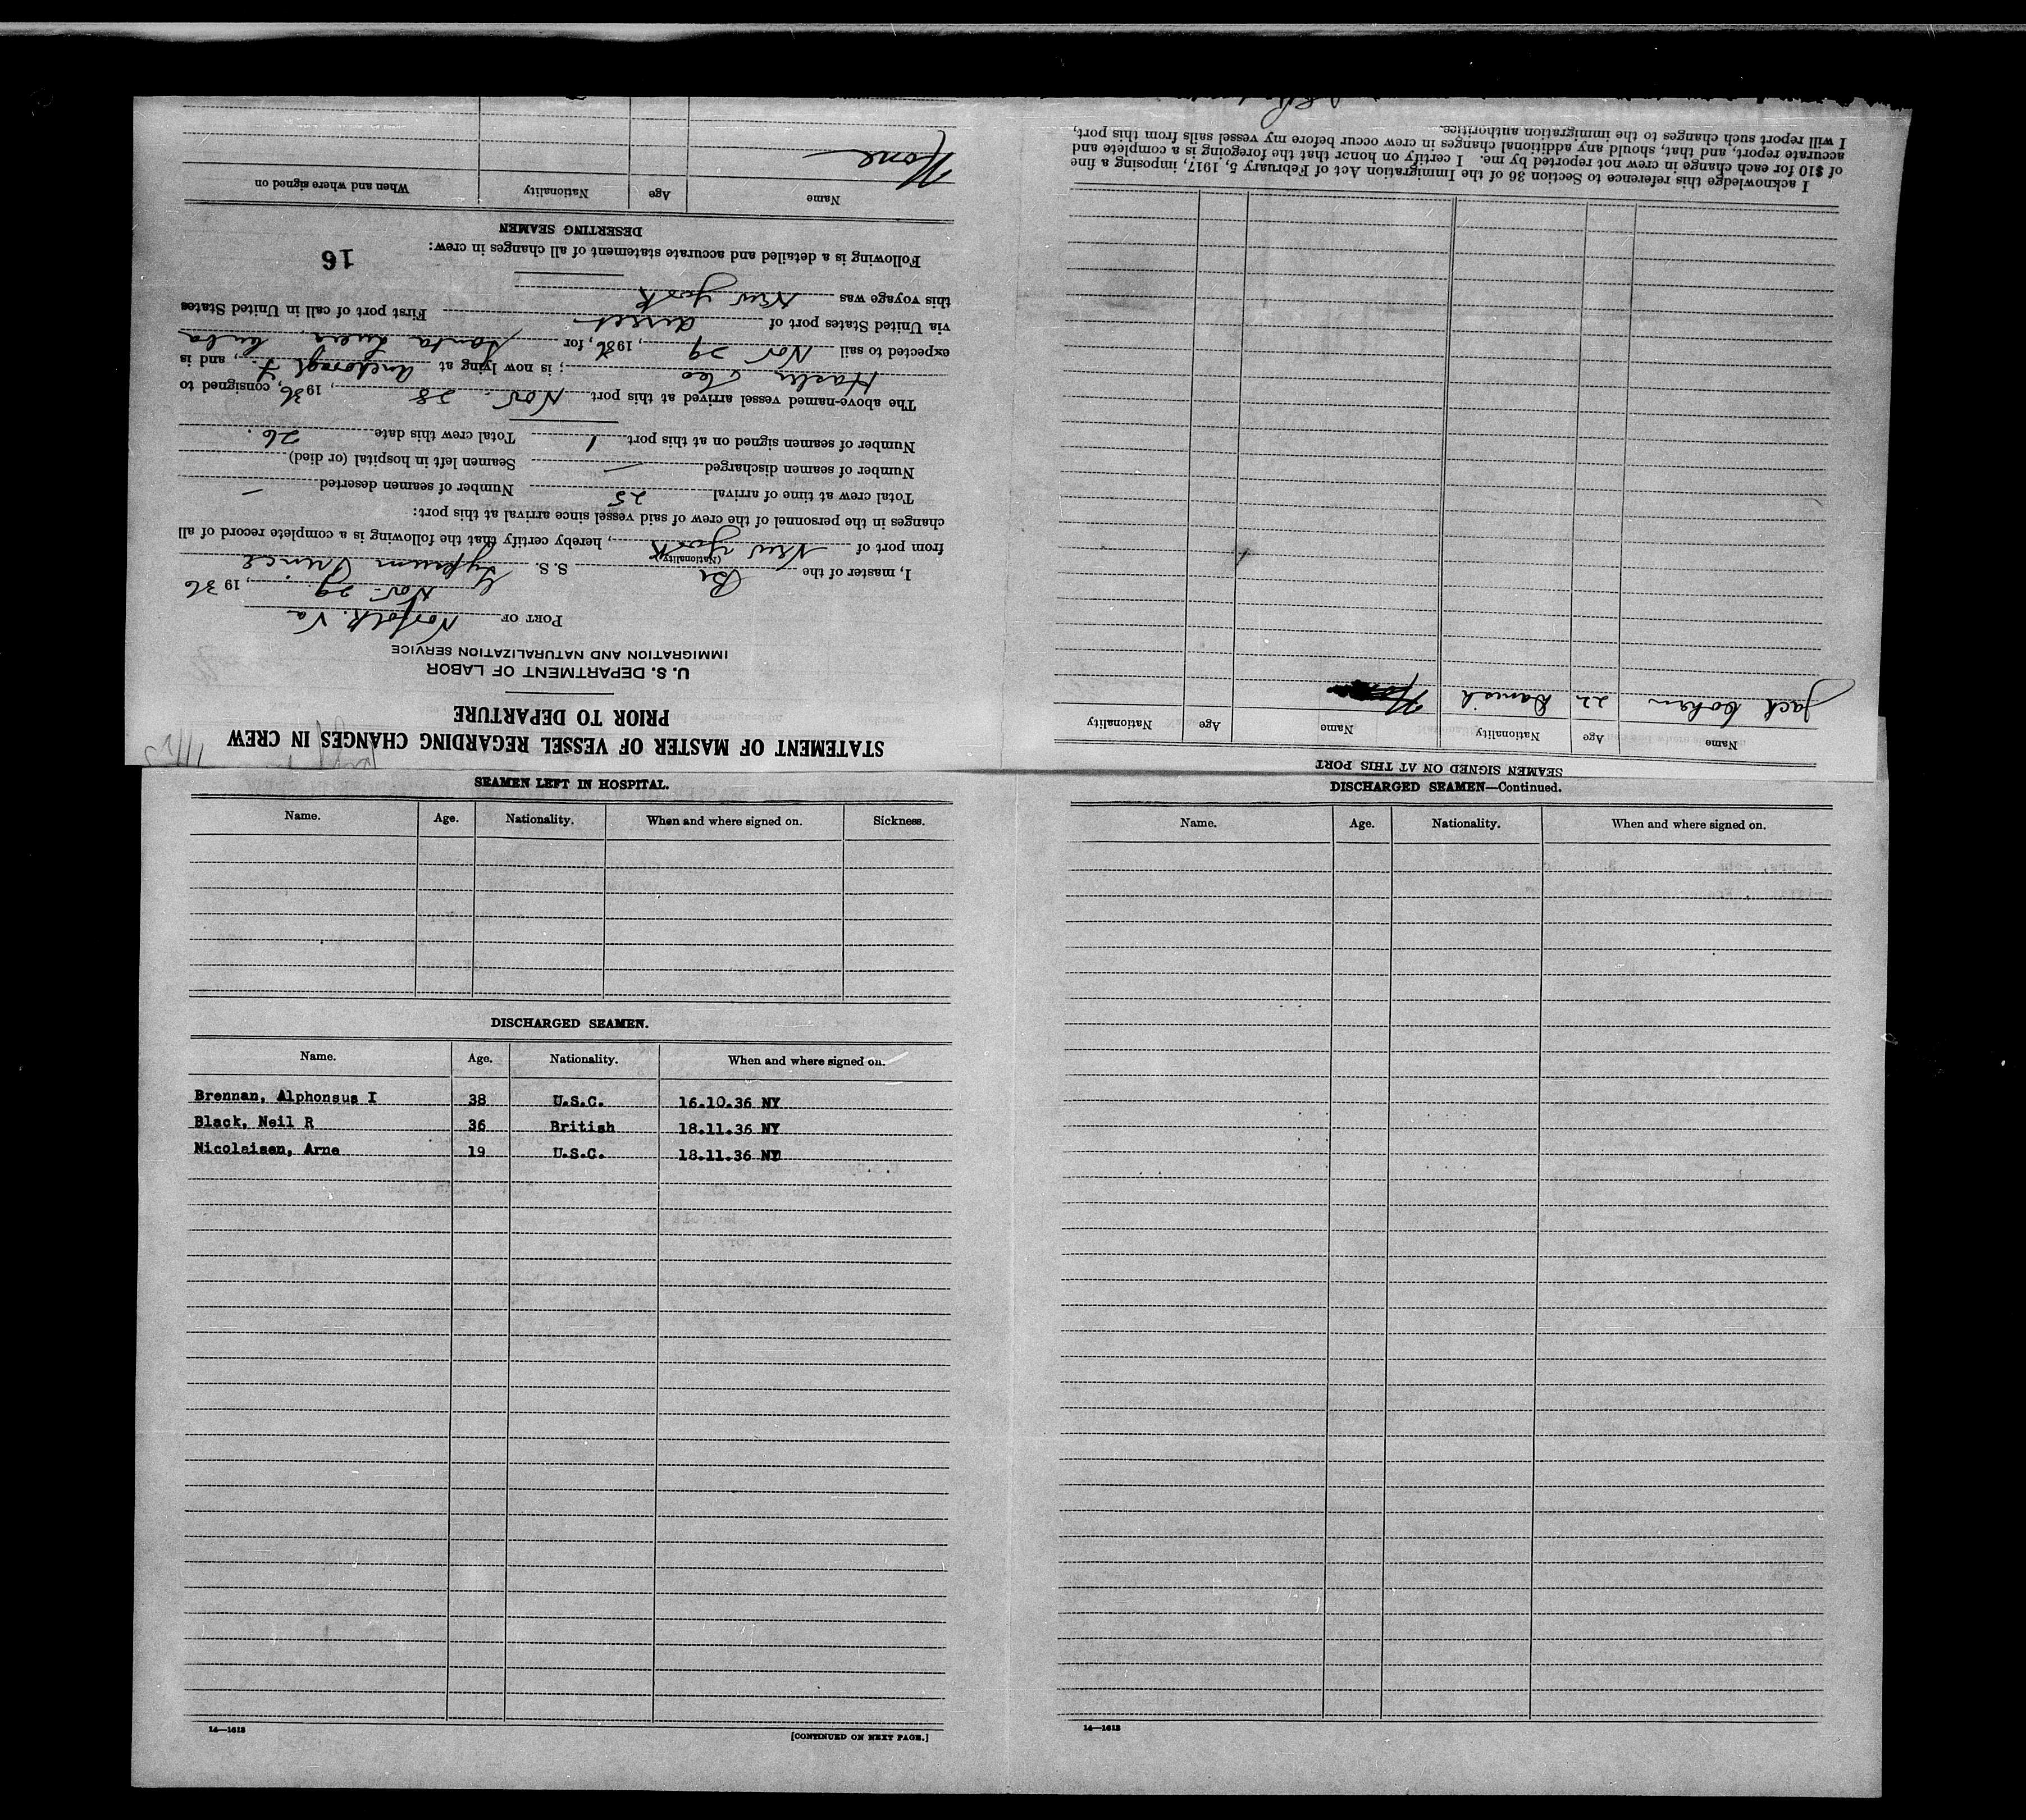 STATEMENT OF MASTER OF VESSEL REGARDING CHANGES IN CREW
PRIOR TO DEPARTURE
U. S. DEPARTMENT OF LABOR
IMMIGRATION AND NATURALIZATION SERVICE
PORT OF Norfolk. Va
Nov. 29, 1936
I, master of the Br S. S. Gypsum Prince
(Nationality)
from port of New York, hereby certify that the following is a complete record of all
changes in the personnel of the crew of said vessel since arrival at this port:
Total crew at time of arrival 25 Number of seamen deserted —
Number of seamen discharged — Seamen left in hospital (or died)
Number of seamen signed on at this port 1 Total crew this date 26.
The above-named vessel arrived at this port Nov. 28, 1936, consigned to
Hasler & Co; is now lying at Anchorage, and is
expected to sail Nov 29, 1936, for Cuba
via United States port of direct First port of call in United States
this voyage was New York
Following is a detailed and accurate statement of all changes in crew:
16
DESERTING SEAMEN
Name Age Nationality When and where signed on
None
SEAMEN SIGNED ON AT THIS PORT
Name Age Nationality Name Age Nationality
Jack 22 Danish
I acknowledge this reference to Section 36 of the Immigration Act of February 5, 1917, imposing a fine
of $10 for each change in crew not reported by me. I certify on honor that the foregoing is a complete and
accurate report, and that, should any additional changes in crew occur before my vessel sails from this port,
I will report such changes to the immigration authorities.
SEAMEN LEFT IN HOSPITAL.
Name. Age. Nationality. When and where signed on. Sickness.
DISCHARGED SEAMEN.
Name. Age. Nationality. When and where signed on.
Brennan, Alphonsus I 38 U.S.C. 16.10.36 NY
Black, Neil R 36 British 18.11.36 NY
Nicolaisen, Arne 19 U.S.C. 18.11.36 NY
14—1613
[CONTINUED ON NEXT PAGE.]
DISCHARGED SEAMEN—Continued.
Name. Age. Nationality. When and where signed on.
14—1613